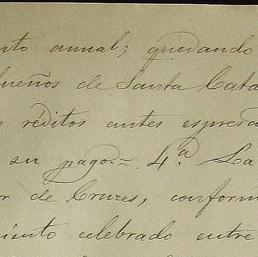 nto annual; quedando
ueños de Santa Cata
réditos antes espresa
su pago.= 4.ª La
r de Cruzes, conform
miento celebrado entre